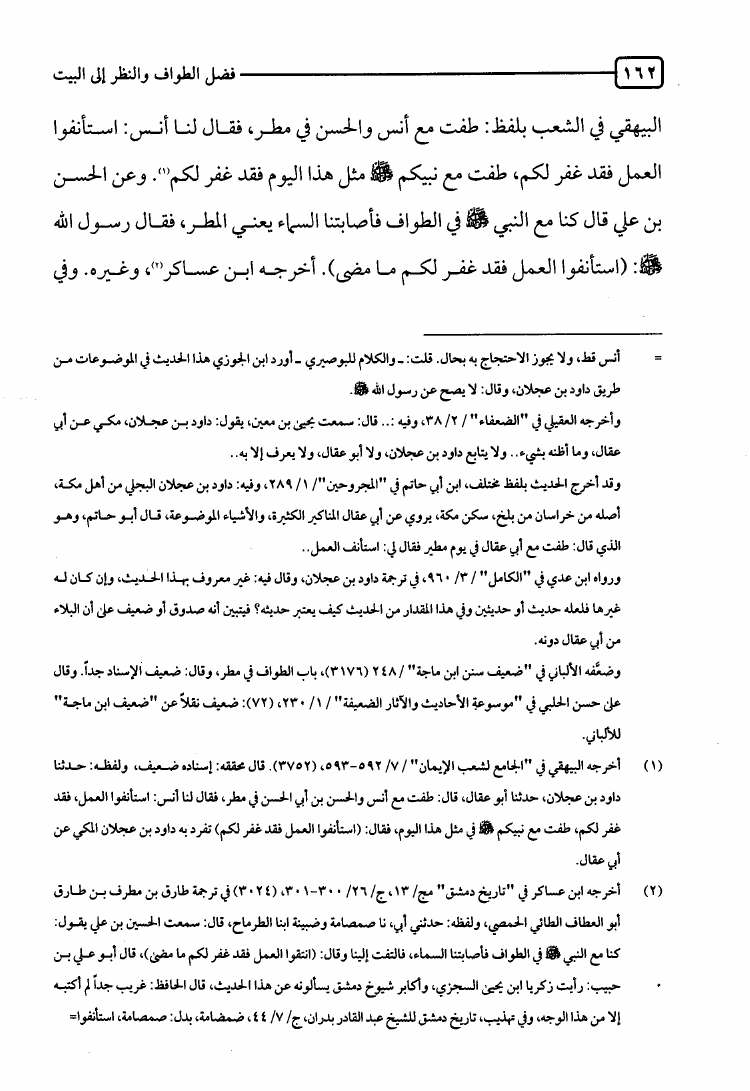 ١٦٢ فضل الطواف والنظر إلى البيت
البيهقي في الشعب بلفظ: طفت مع أنس والحسن في مطر، فقال لنا أنس: استأنفوا
العمل فقد غفر لكم، طفت مع نبيكم ﷺ مثل هذا اليوم فقد غفر لكم(١). وعن الحسن
بن علي قال كنا مع النبي ﷺ في الطواف فأصابتنا السماء يعني المطر، فقال رسول الله
ﷺ: (استأنفوا العمل فقد غفر لكم ما مضى). أخرجه ابن عساكر(٢)، وغيره. وفي
= أنس قط، ولا يجوز الاحتجاج به بحال. قلت: ـ والكلام للبوصيري ـ أورد ابن الجوزي هذا الحديث في الموضوعات من
طريق داود بن عجلان، وقال: لا يصح عن رسول الله ﷺ.
وأخرجه العقيلي في "الضعفاء" / ٢/ ٣٨، وفيه :.. قال: سمعت يحيى بن معين، يقول: داود بن عجلان، مكي عن أبي
عقال، وما أظنه بشيء.. ولا يتابع داود بن عجلان، ولا أبو عقال، ولا يعرف إلا به..
وقد أخرج الحديث بلفظ مختلف، ابن أبي حاتم في "المجروحين"/ ١/ ٢٨٩، وفيه: داود بن عجلان البجلي من أهل مكة،
أصله من خراسان من بلخ، سكن مكة، يروي عن أبي عقال المناكير الكثيرة، والأشياء الموضوعة، قال أبو حاتم، وهو
الذي قال: طفت مع أبي عقال في يوم مطير فقال لي: استأنف العمل..
ورواه ابن عدي في "الكامل" / ٣/ ٩٦٠، في ترجمة داود بن عجلان، وقال فيه: غير معروف بهذا الحديث، وإن كان له
غيرها فلعله حديث أو حديثين وفي هذا المقدار من الحديث كيف يعتبر حديثه؟ فيتبين أنه صدوق أو ضعيف على أن البلاء
من أبي عقال دونه.
وضعَّفه الألباني في "ضعيف سنن ابن ماجة" / ٢٤٨ (٣١٧٦)، باب الطواف في مطر، وقال: ضعيف الإسناد جداً. وقال
علي حسن الحلبي في "موسوعة الأحاديث والآثار الضعيفة" / ١/ ٢٣٠، (٧٢): ضعيف نقلاً عن "ضعيف ابن ماجة"
للألباني.
(١) أخرجه البيهقي في "الجامع لشعب الإيمان" / ٧/ ٥٩٢-٥٩٣، (٣٧٥٢). قال محققه: إسناده ضعيف، ولفظه: حدثنا
داود بن عجلان، حدثنا أبو عقال، قال: طفت مع أنس والحسن بن أبي الحسن في مطر، فقال لنا أنس: استأنفوا العمل، فقد
غفر لكم، طفت مع نبيكم ﷺ في مثل هذا اليوم، فقال: (استأنفوا العمل فقد غفر لكم) تفرد به داود بن عجلان المكي عن
أبي عقال.
(٢) أخرجه ابن عساكر في "تاريخ دمشق" مج/ ١٣، ج/ ٢٦/ ٣٠٠-٣٠١، (٣٠٢٤) في ترجمة طارق بن مطرف بن طارق
أبو العطاف الطائي الحمصي، ولفظه: حدثني أبي، نا صمصامة وضبينة ابنا الطرماح، قال: سمعت الحسين بن علي يقول:
كنا مع النبي ﷺ في الطواف فأصابتنا السماء، فالتفت إلينا وقال: (انتقوا العمل فقد غفر لكم ما مضى)، قال أبو علي بن
حبيب: رأيت زكريا ابن يحيى السجزي، وأكابر شيوخ دمشق يسألونه عن هذا الحديث، قال الحافظ: غريب جداً لم أكتبه
إلا من هذا الوجه، وفي تهذيب، تاريخ دمشق للشيخ عبد القادر بدران، ج/ ٧/ ٤٤، ضمضامة، بدل: صمصامة، استأنفوا=